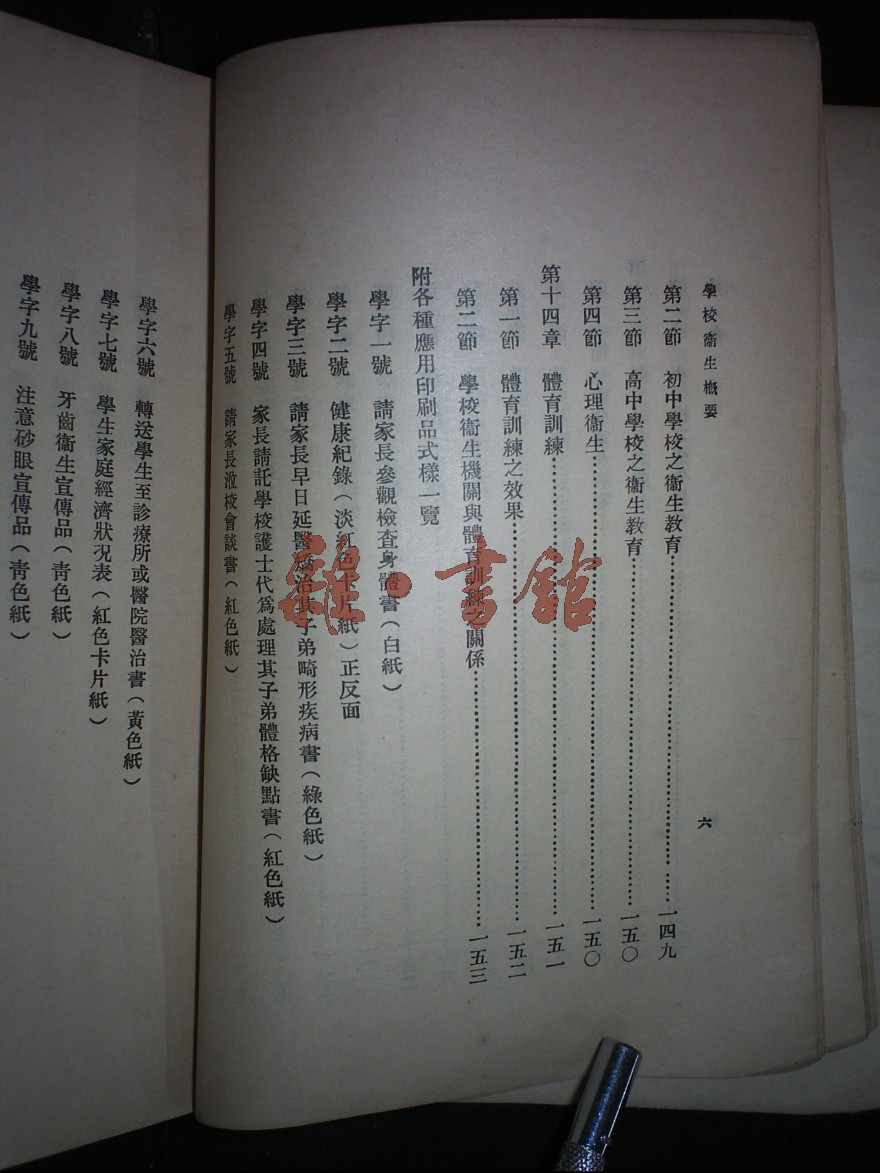 學校衞生概要
六
第二節　初中學校之衞生教育……一四九
第三節　高中學校之衞生教育……一五〇
第四節　心理衞生……一五〇
第十四章　體育訓練……一五一
第一節　體育訓練之效果……一五二
第二節　學校衞生機關與體育訓練之關係……一五三
附各種應用印刷品式樣一覽
學字一號　請家長參觀檢查身體書（白紙）
學字二號　健康紀錄（淡紅色卡片紙）正反面
學字三號　請家長早日延醫矯治其子弟畸形疾病書（綠色紙）
學字四號　家長請託學校護士代爲處理其子弟體格缺點書（紅色紙）
學字五號　請家長涖校會談書（紅色紙）
學字六號　轉送學生至診療所或醫院醫治書（黃色紙）
學字七號　學生家庭經濟狀況表（紅色卡片紙）
學字八號　牙齒衞生宣傳品（靑色紙）
學字九號　注意砂眼宣傳品（靑色紙）
雜·書館